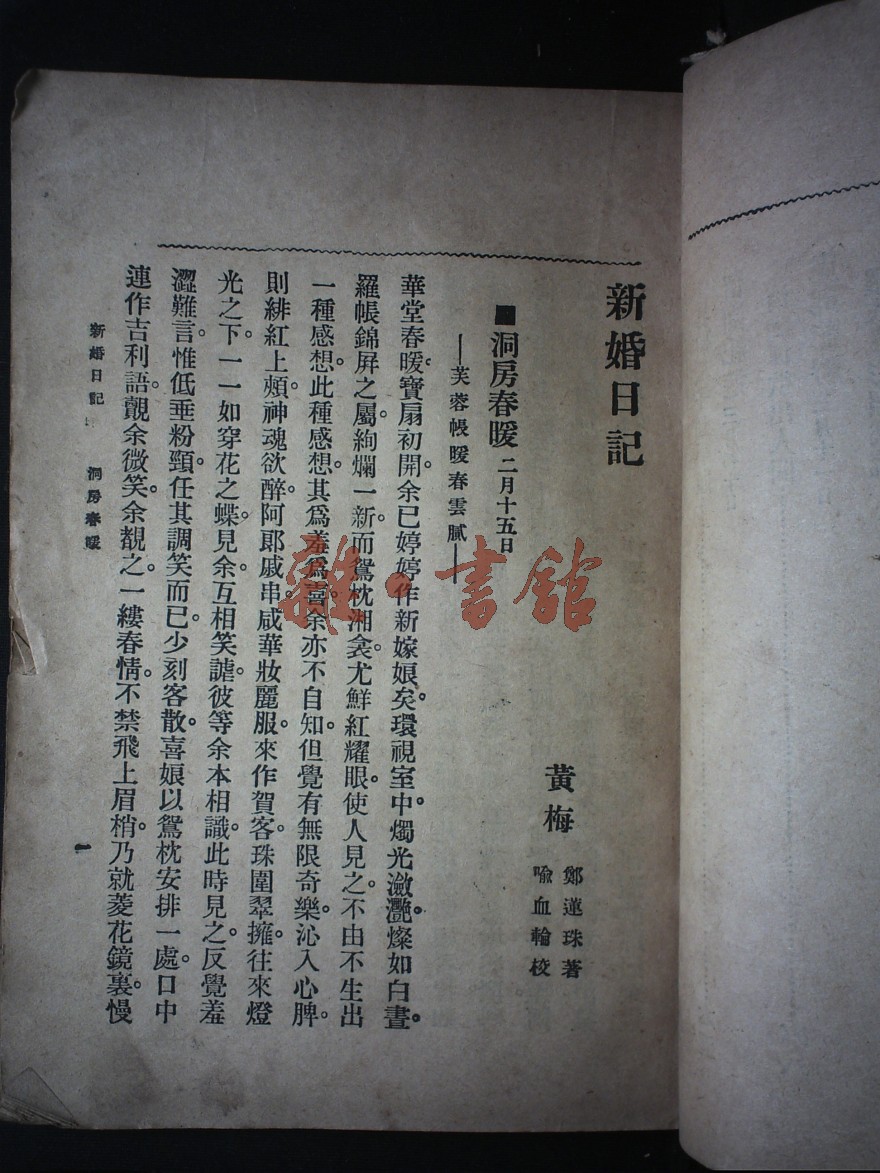 新婚日記
黃梅
鄭蓮珠著
喩血輪校
■洞房春暖 二月十五日
——芙蓉帳暖春雲膩——
華堂春暖。寶扇初開。余已婷婷作新嫁娘矣。環視室中。燭光瀲灧。燦如白晝。
羅帳錦屛之屬。絢爛一新。而鴛枕湘衾。尤鮮紅耀眼。使人見之。不由不生出
一種感想。此種感想。其爲羞爲喜。余亦不自知。但覺有無限奇樂。沁入心脾。
則緋紅上頰。神魂欲醉。阿郞戚串。咸華妝麗服。來作賀客。珠圍翠擁。往來燈
光之下。一一如穿花之蝶。見余。互相笑謔。彼等余本相識。此時見之。反覺羞
澀難言。惟低垂粉頸。任其調笑而已。少刻客散。喜娘以鴛枕安排一處。口中
連作吉利語。覷余微笑。余覩之。一縷春情。不禁飛上眉梢。乃就菱花鏡裏。慢
新婚日記 洞房春暖
一
雜·書館